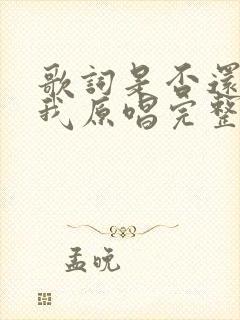 歌詞是否還
我原唱完整
孟晚